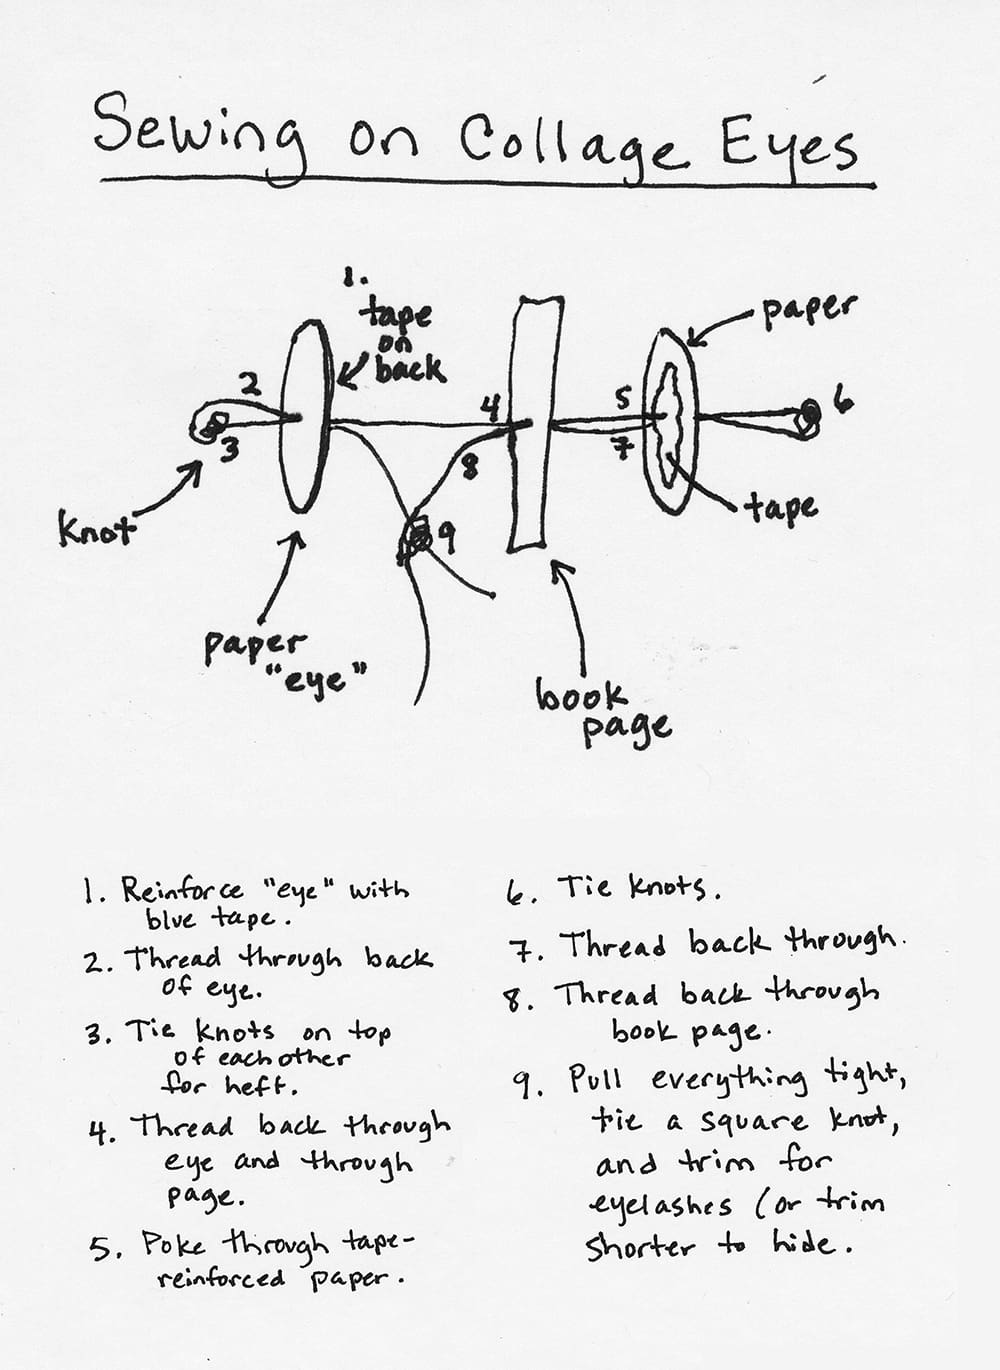 Sewing on Collage Eyes
1.
tape
on
back
paper
2
3
4
5
6
7
8
9
Knot
tape
paper
"eye"
book
page
1. Reinforce "eye" with
blue tape.
2. Thread through back
of eye.
3. Tie knots on top
of each other
for heft.
4. Thread back through
eye and through
page.
5. Poke through tape-
reinforced paper.
6. Tie knots.
7. Thread back through.
8. Thread back through
book page.
9. Pull everything tight,
tie a square knot,
and trim for
eyelashes (or trim
shorter to hide.